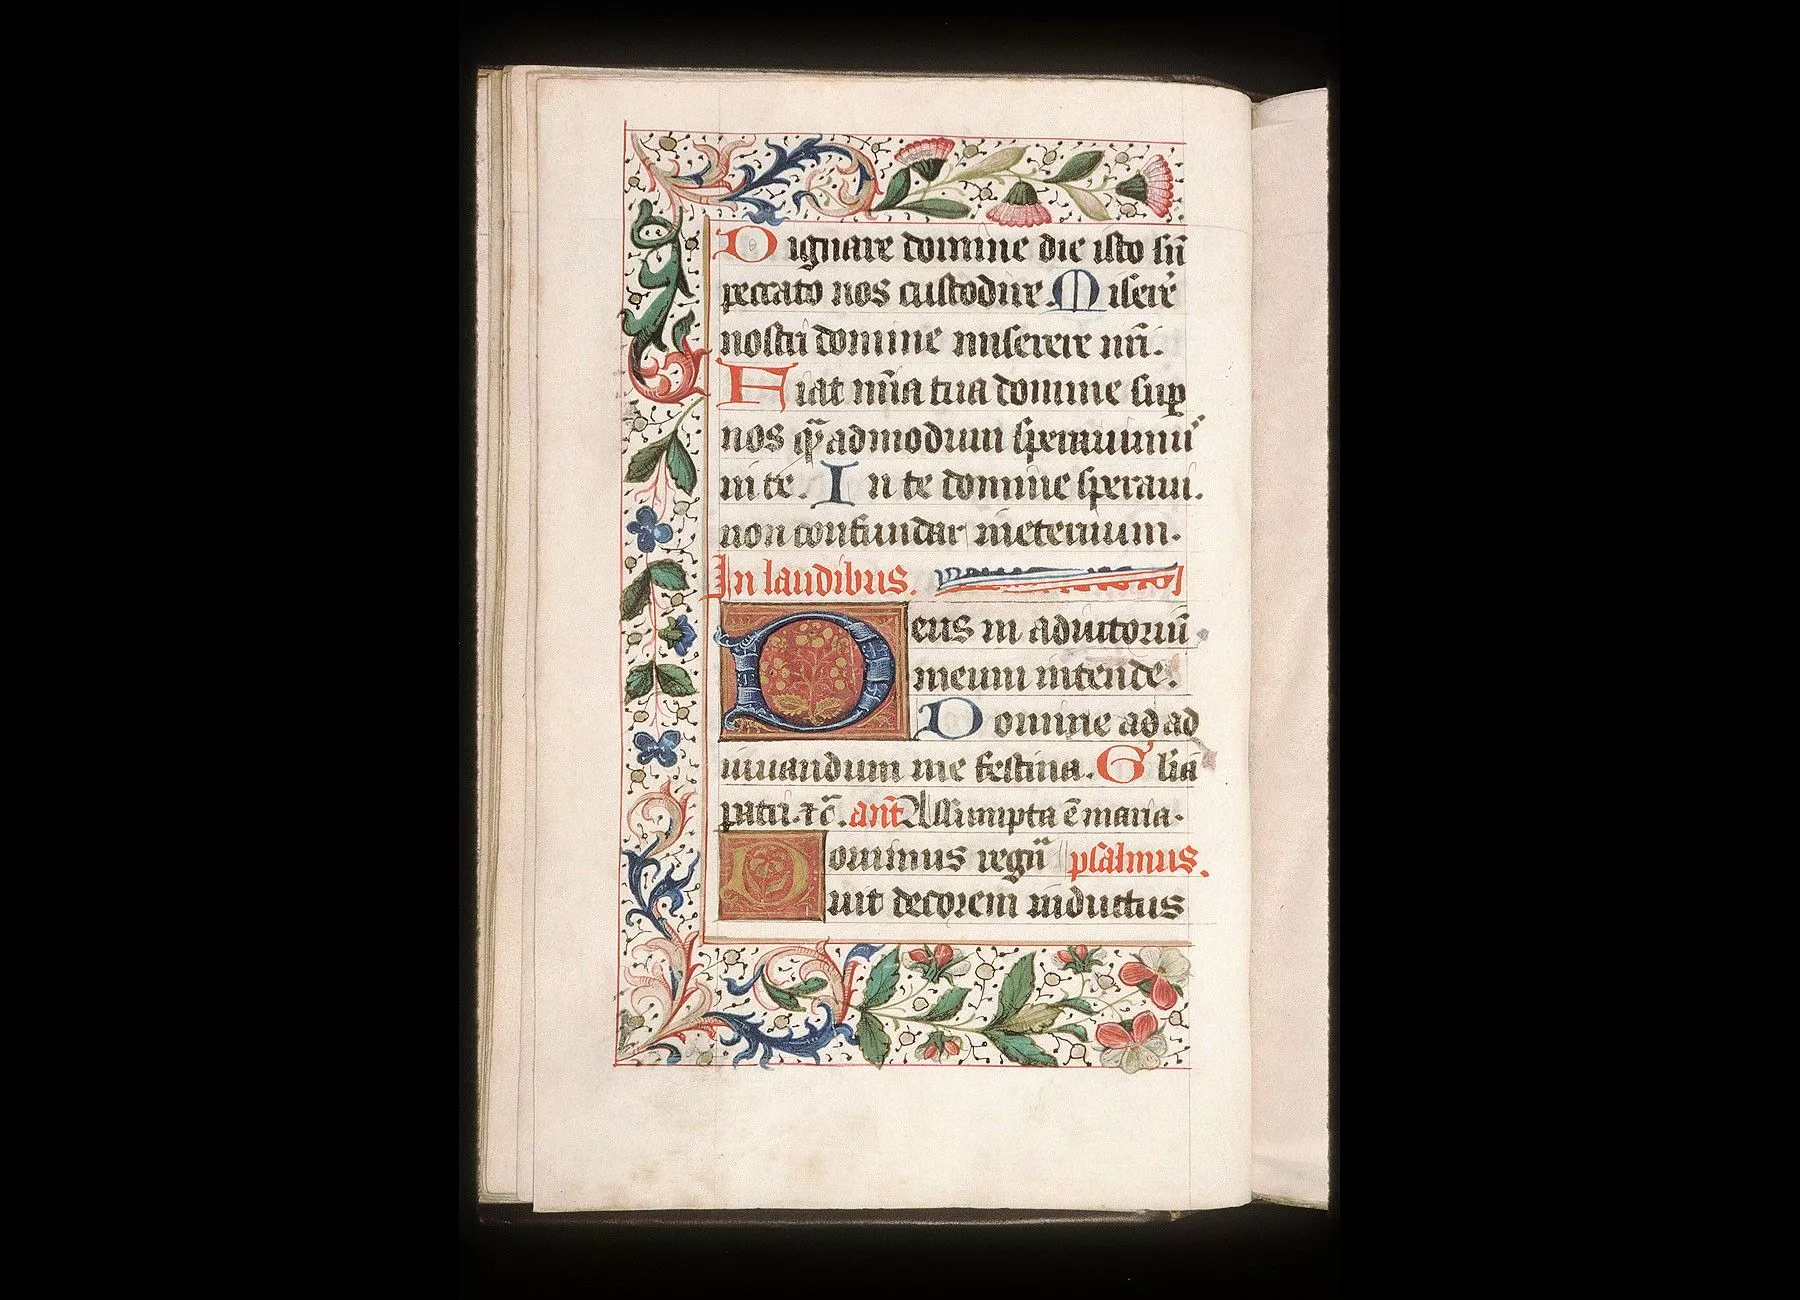 Dignare domine die isto sn̄
peccato nos custodire Miserē
nostri domine miserere nr̄i.
Fiat mīa tua domine sup
nos qͣadmodum sperauimꝰ
in te. In te domine speraui.
non confundar ineternum.
In laudibus.
Deus in adiutoriū
meum intende.
Domine ad ad
iuuandum me festina. Glīa
patri. ⁊c̄. an̄t Assumpta ē maria.
Dominus regn̄ psalmus.
uit decorem indutus